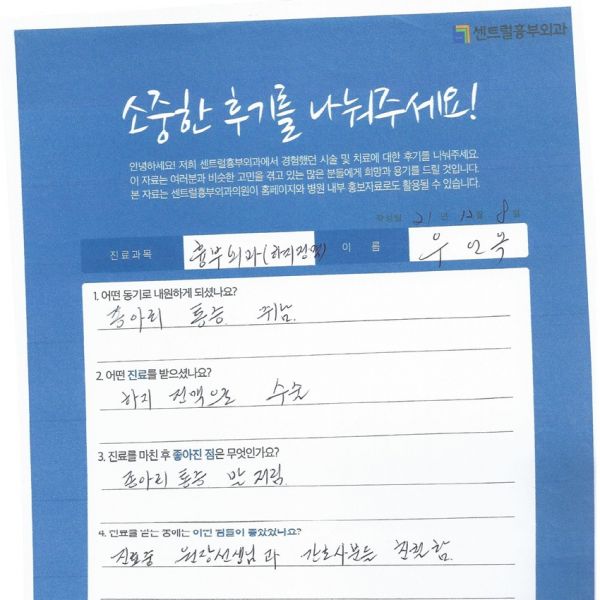 센트럴흉부외과
소중한 후기를 나눠주세요!
안녕하세요! 저희 센트럴흉부외과에서 경험했던 시술 및 치료에 대한 후기를 나눠주세요.
이 자료는 여러분과 비슷한 고민을 겪고 있는 많은 분들에게 희망과 용기를 드릴 것입니다.
본 자료는 센트럴흉부외과의원이 홈페이지와 병원 내부 홍보자료로도 활용될 수 있습니다.
작성일 21 년 12 월 8 일
진료과목 흉부외과(하지정맥) 이 름 우
1. 어떤 동기로 내원하게 되셨나요?
종아리 통증. 쥐남.
2. 어떤 진료를 받으셨나요?
하지 정맥으로 수술
3. 진료를 마친 후 좋아진 점은 무엇인가요?
종아리 통증 발 저림.
4. 진료를 받는 중에는 어떤 점들이 좋았었나요?
진료중 원장선생님과 간호사분들 친절함.